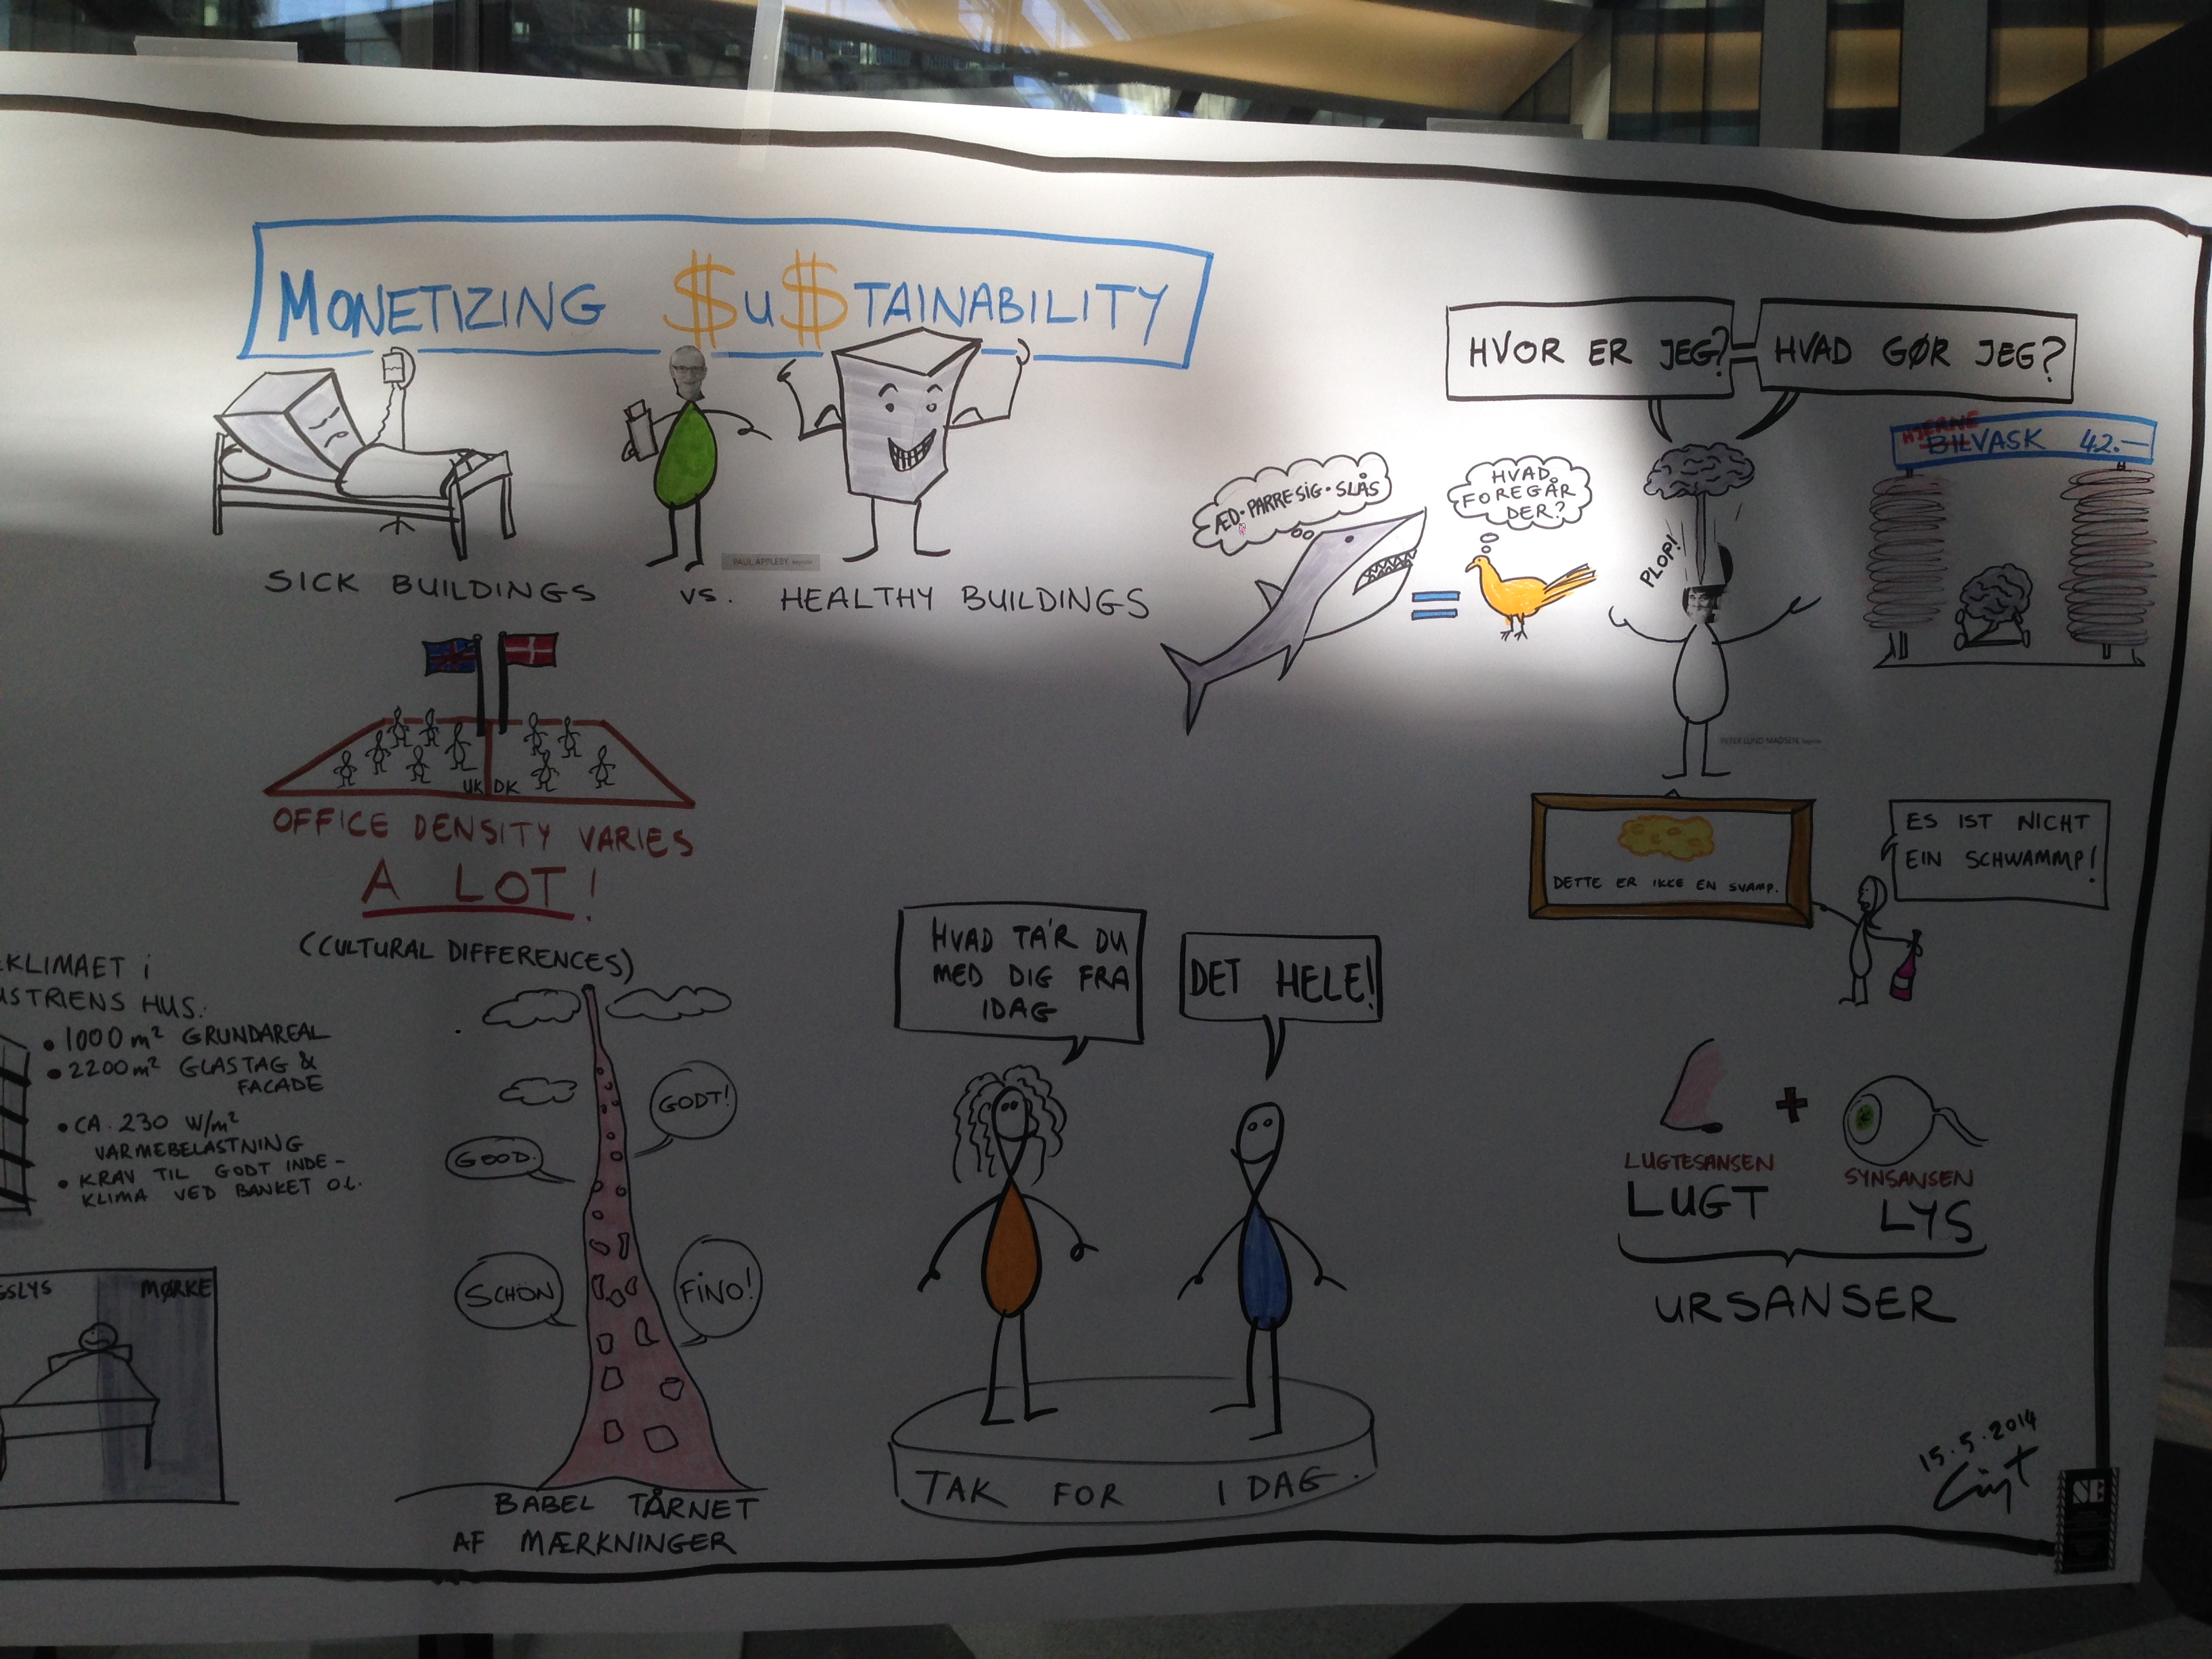 MONETIZING $U$TAINABILITY
PAUL APPLEBY keynote
SICK BUILDINGS vs. HEALTHY BUILDINGS
UK DK
OFFICE DENSITY VARIES
A LOT!
(CULTURAL DIFFERENCES)
HVOR ER JEG? = HVAD GØR JEG?
HJERNE
BILVASK 42.-
ÆD · PARRE SIG · SLÅS
HVAD
FOREGÅR
DER?
PLOP!
PETER LUND MADSEN keynote
DETTE ER IKKE EN SVAMP.
ES IST NICHT
EIN SCHWAMMP!
KLIMAET i
USTRIENS HUS:
• 1000 m² GRUNDAREAL
• 2200 m² GLASTAG &
FACADE
• CA. 230 W/m²
VARMEBELASTNING
• KRAV TIL GODT INDE-
KLIMA VED BANKET O.L.
SSLYS MØRKE
GODT!
GOOD.
SCHÖN
FINO!
BABEL TÅRNET
AF MÆRKNINGER
HVAD TA'R DU
MED DIG FRA
IDAG
DET HELE!
TAK FOR I DAG.
LUGTESANSEN
LUGT
+
SYNSANSEN
LYS
URSANSER
15.5.2014